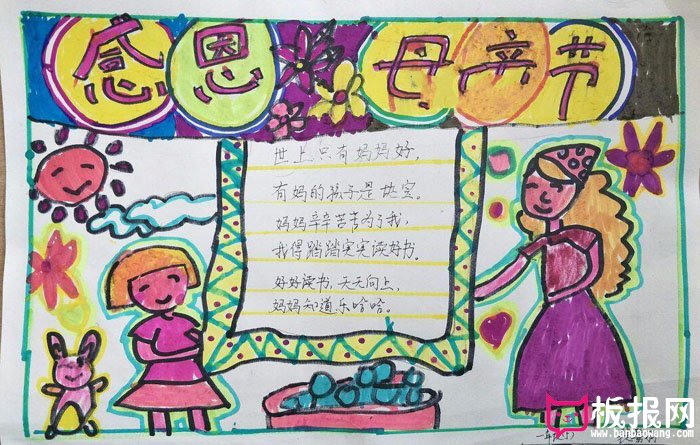 感恩母产节
世上只有妈妈好,
有妈的孩子是块宝。
妈妈辛辛苦苦为了我,
我得踏踏实实读好书。
好好读书,天天向上,
妈妈知道乐哈哈。
板报网
www.banbaowang.com